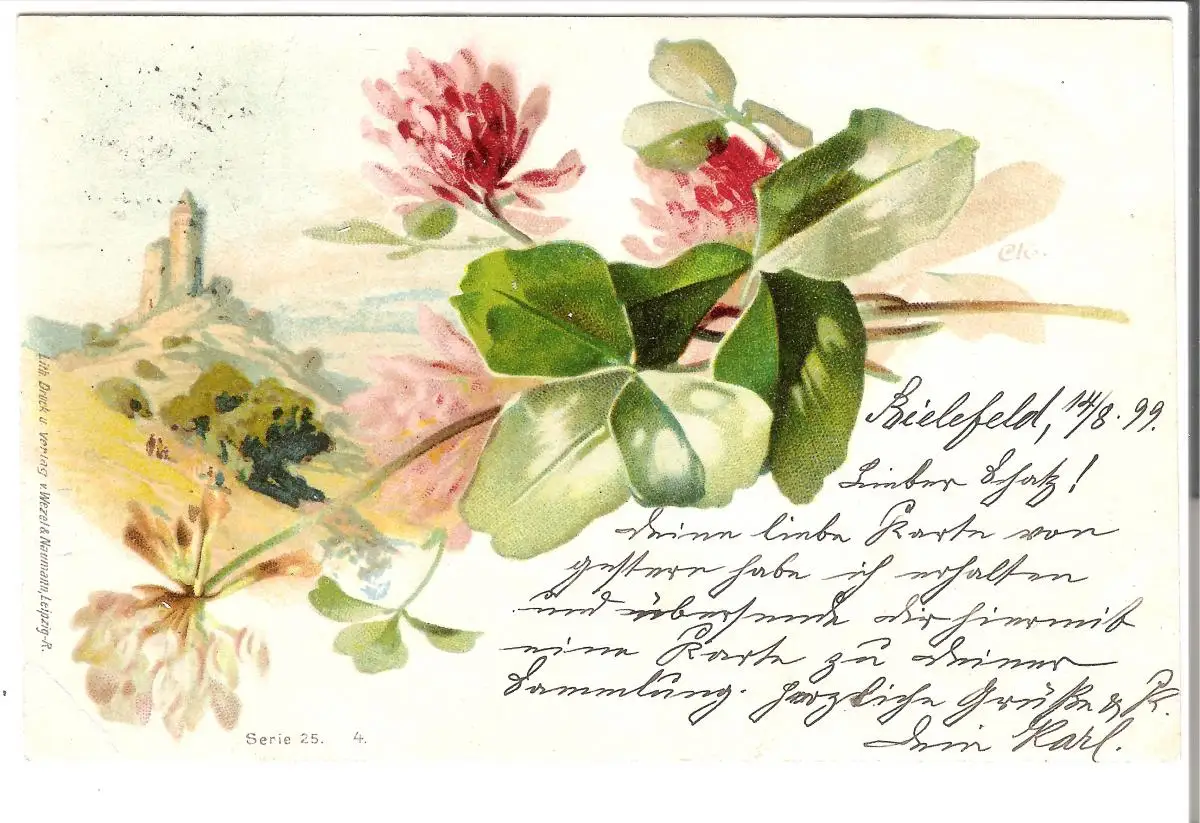 Che.
Bielefeld, 14/8. 99.
Lieber Schatz!
Deine liebe Karte von
gestern habe ich erhalten
und übersende Dir hiermit
eine Karte zu Deiner
Sammlung. Herzliche Grüße & K.
Dein Karl.
Lith. Druck u. Verlag v. Wezel & Naumann, Leipzig-R.
Serie 25. 4.